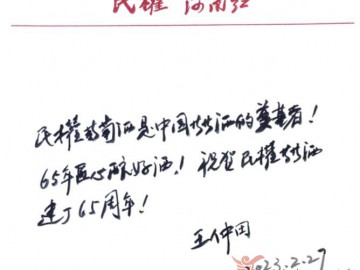 民權 河南红
民權葡萄酒是中国葡萄酒的奠基者！
65年匠心酿好酒！祝贺民權葡萄酒
建厂65周年！
王仲田
2023.2.27